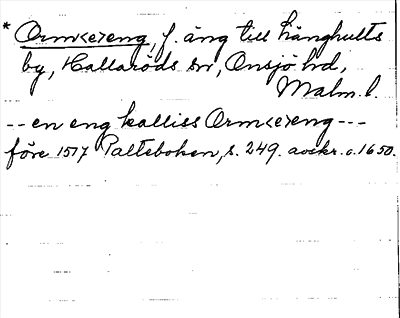 * Orm<e>eng, f. äng till Hänghults
by, Hallaröds sn, Onsjö hd,
Malm. l.
-- en eng kalliss Orm<e>eng ---
före 1517 Palteboken, s. 249. avskr. c. 1650.